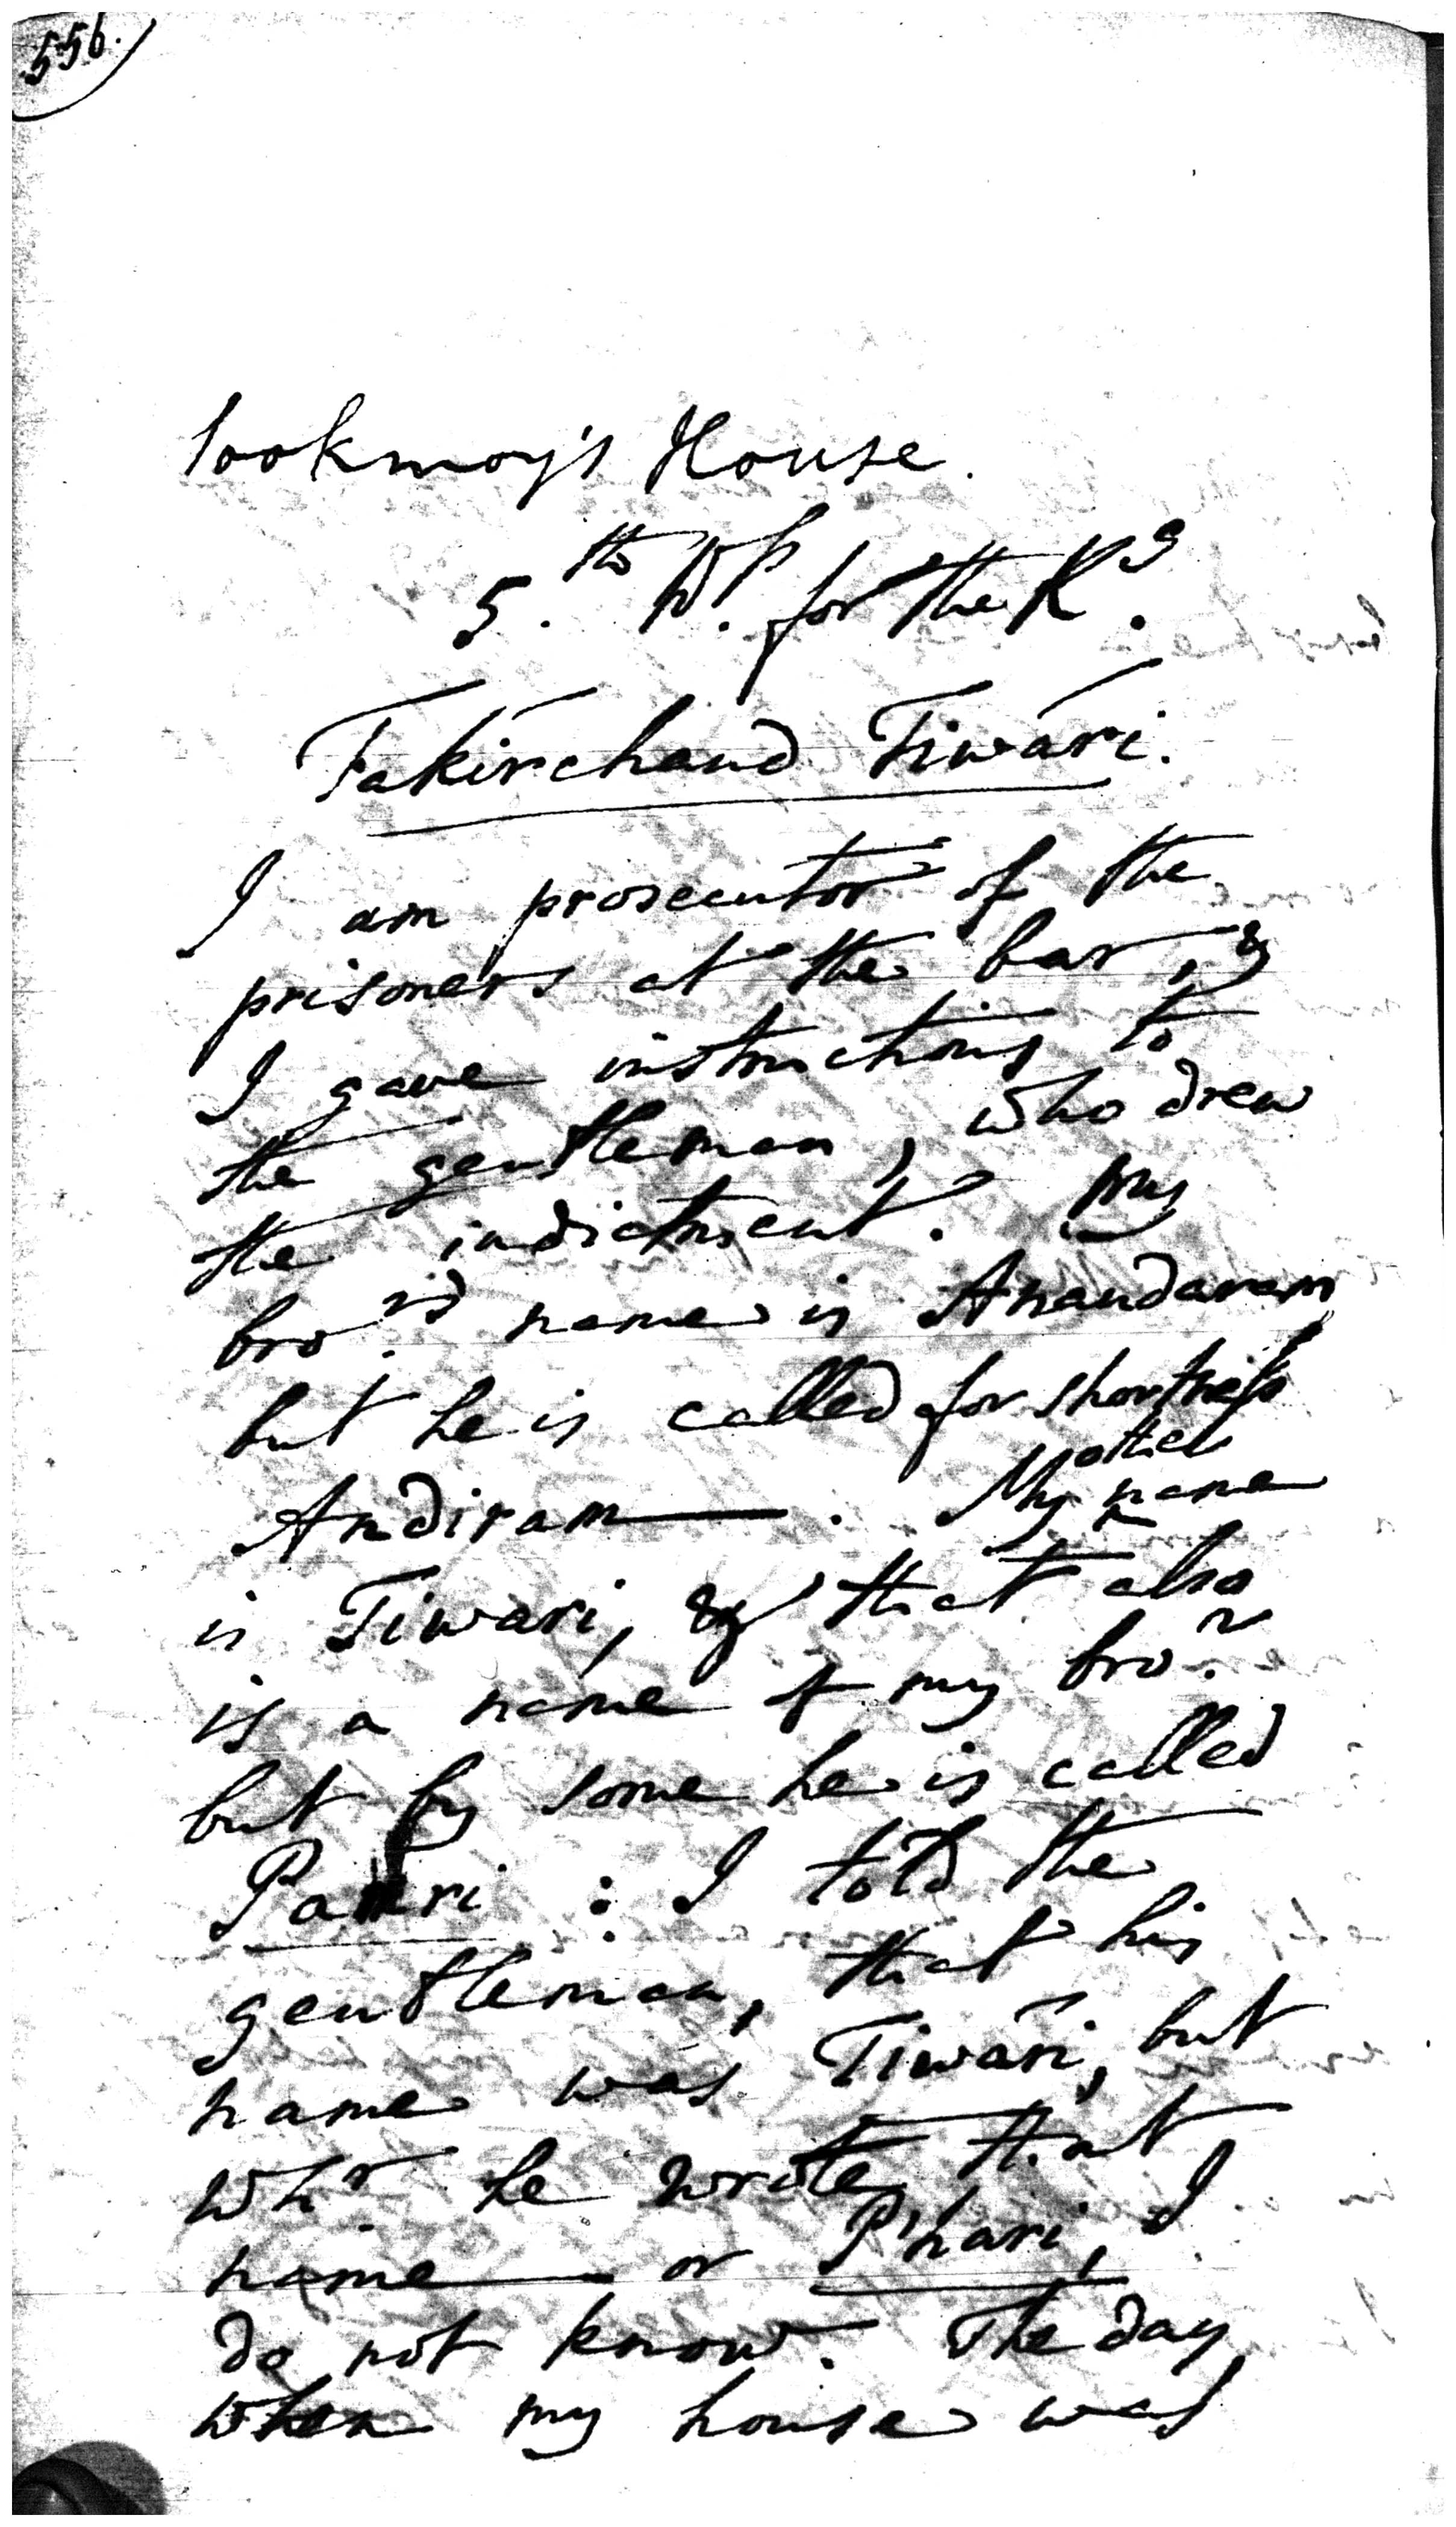 556.
Sookmoy's House.
5.th W.s for the K.g
Fakirchand Tiwari.
I am prosecutor of the
prisoners at the bar, &
I gave instructions to
the gentleman, who drew
the indictment. My
bro.r's name is Anandaram
but he is called for shortness
Andiram. My other name
is Tiwari, & that also
is a name of my bro.r
but by some he is called
: I told the
gentleman, that his
name was Tiwari, but
wh.r he wrote that
name or P'hari, I
do not know. The day
when my house was